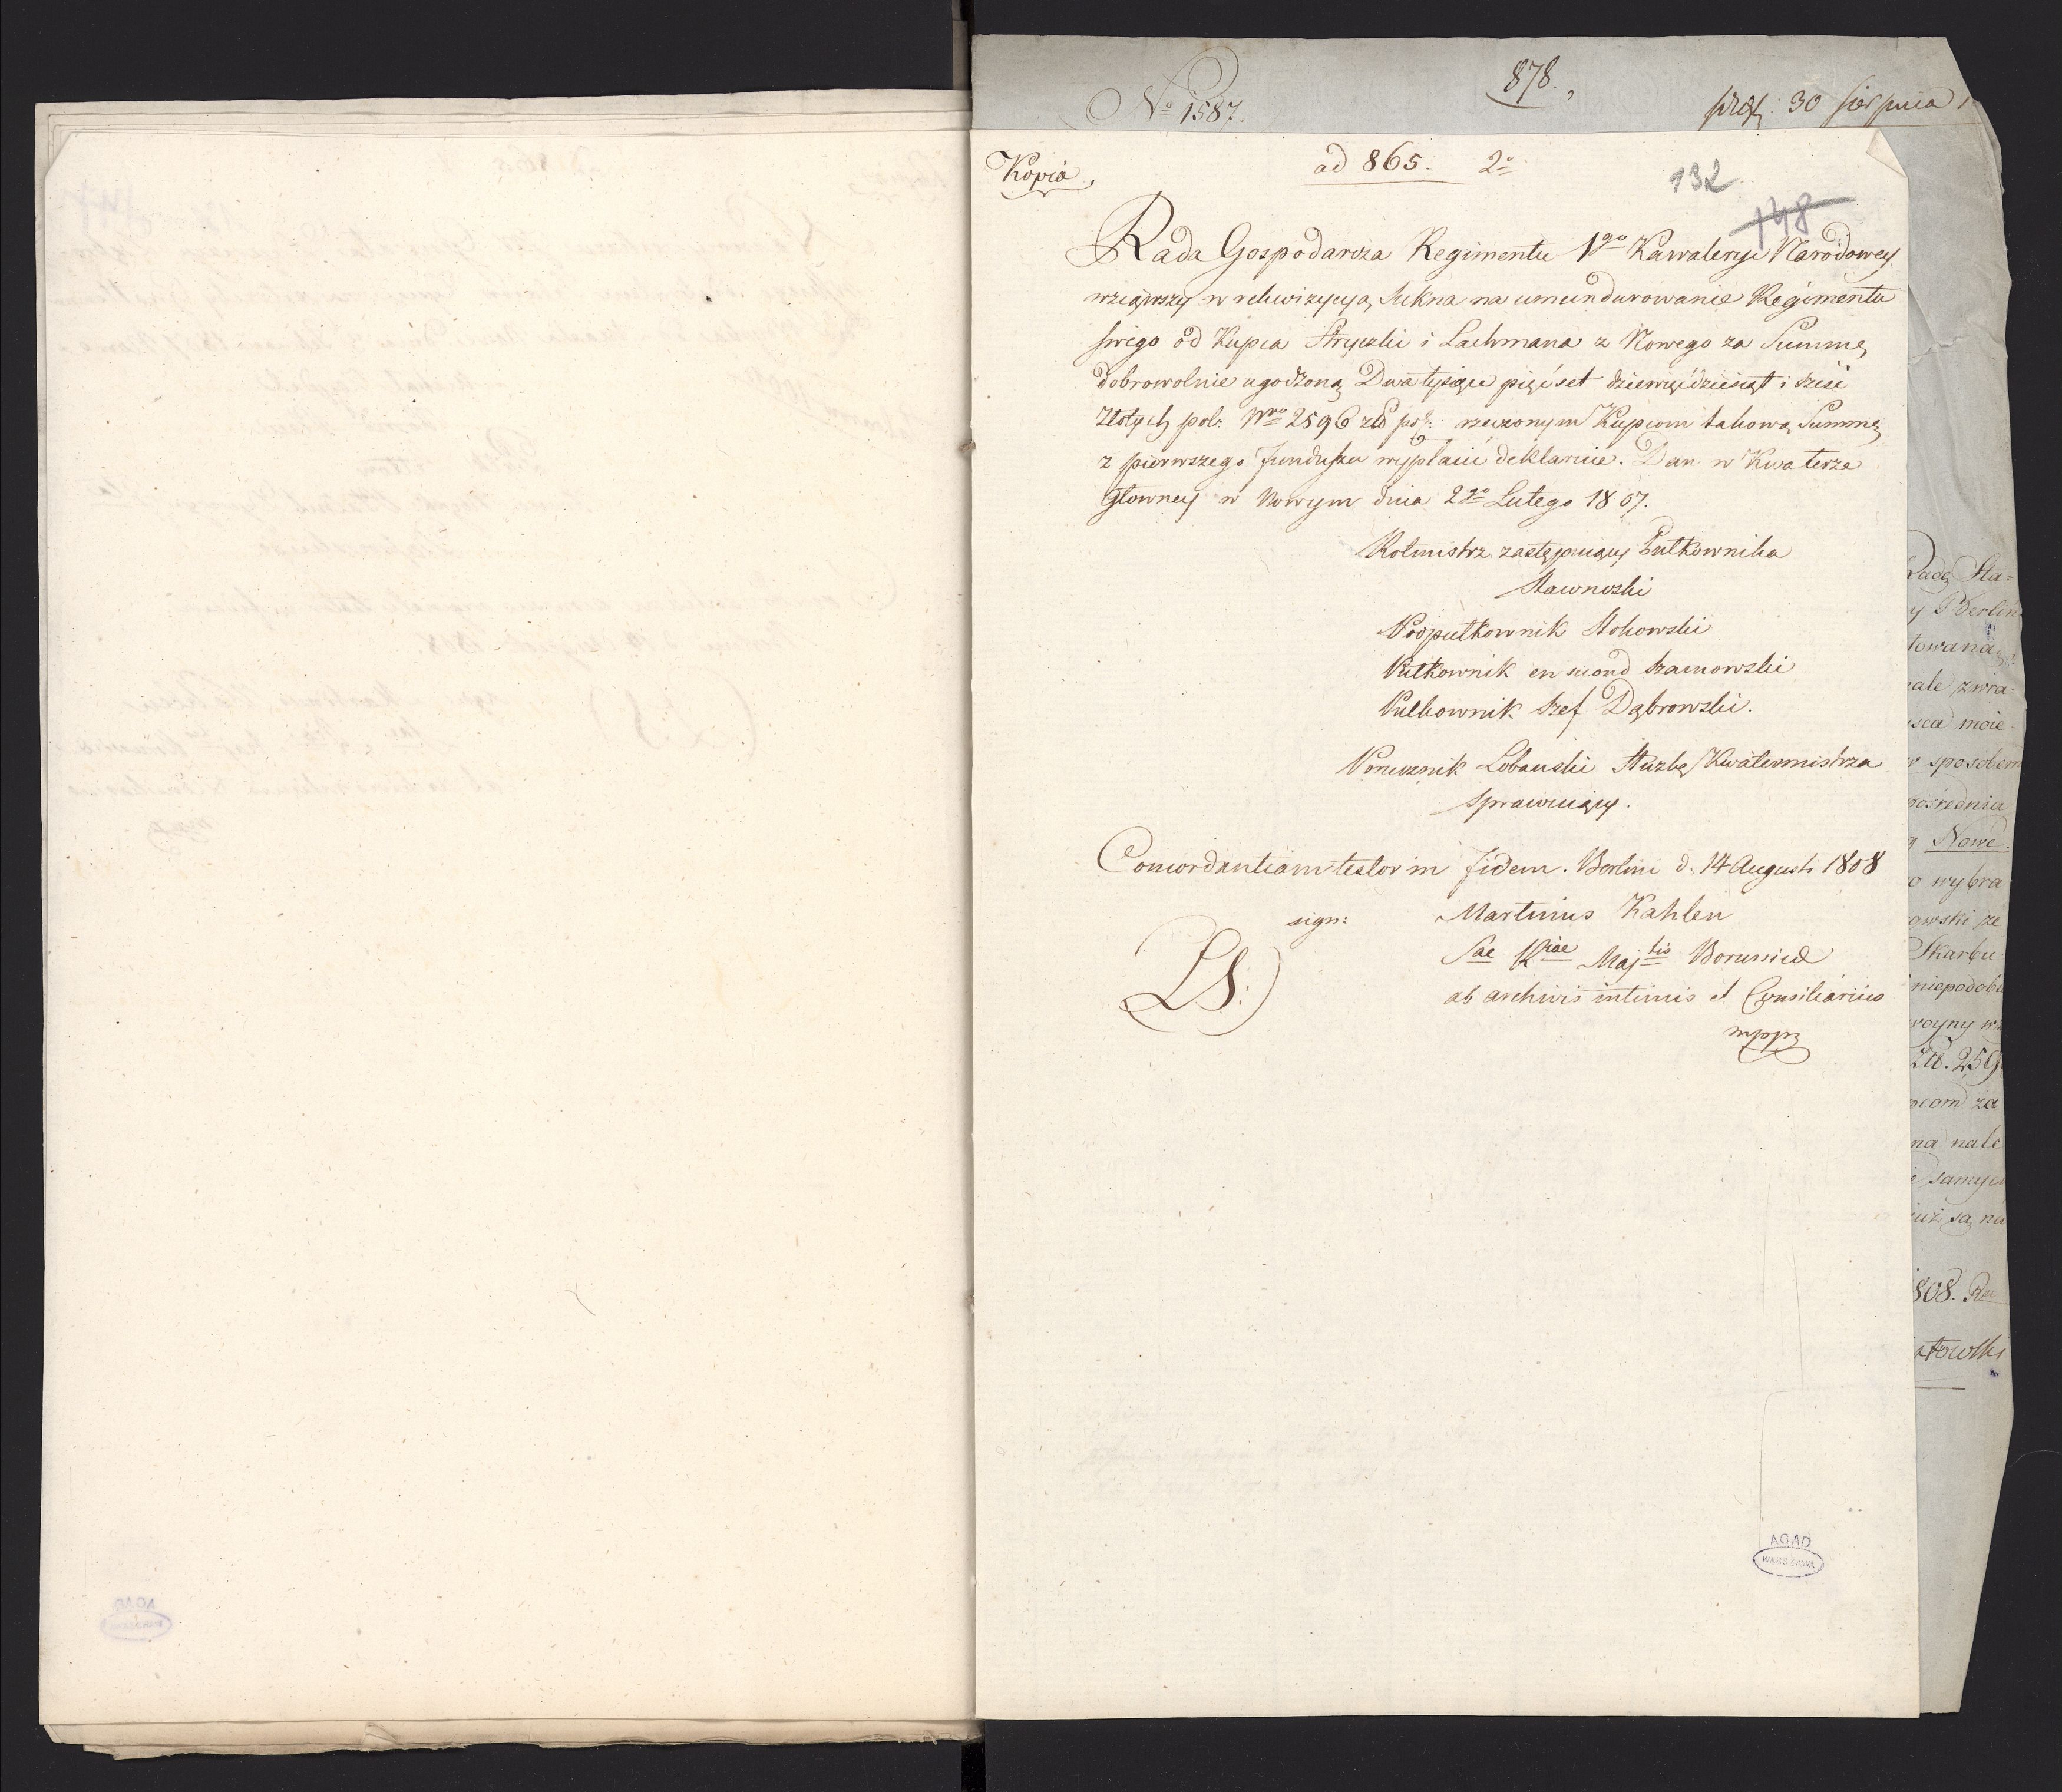 878.
No 1587.
prez: 30 sierpnia
Kopia.
ad 865. 2o
132
148
Rada Gospodarcza Regimentu 1go Kawaleryi Narodowey
wziąwszy w rekwizycyą Sukna na umundurowanie Regimentu
swego od Kupca Stryczki i Lachmana z Nowego za Summę
dobrowolnie ugodzoną Dwa tysiące pięćset dziewięćdziesiąt i sześć
Złotych pol: Nro 2596 zł pol: rzeczonym Kupcom takową Summę
z pierwszego Funduszu wypłacić deklaruie. Dan w Kwaterze
Głowney w Nowym dnia 2go Lutego 1807.
Rotmistrz zastępuiący Pułkownika
Podpułkownik Stokowski
Pułkownik en second Szamowski
Pułkownik Szef Dąbrowski.
Porucznik Lobauski Służbę Kwatermistrza
sprawuiący.
Concordantiam testor in fidem. Berlini d. 14 Augusti 1808
sign: Martinus Kahlen
LS:)
Sae Rriae Majtis Borussicæ
ab archivis intimis et Consiliarius
mppa
Radę Sta=
y Berlin
towana
ale zwra=
sca moie
sposobem
pośredniu
Nowe
o wybra
owski ze
Skarbu
niepodob
woyny w
Zł. 259
pcom za
na nale
samych
iuż są na
808.
AGAD
WARSZAWA